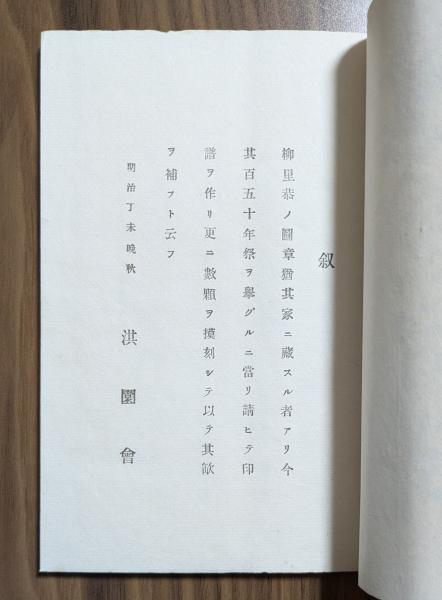 叙
柳里恭ノ圖章猶其家ニ藏スル者アリ今
其百五十年祭ヲ擧グルニ當リ請ヒテ印
譜ヲ作リ更ニ數顆ヲ摸刻シテ以テ其欿
ヲ補フト云フ
明治丁未晩秋
淇園會